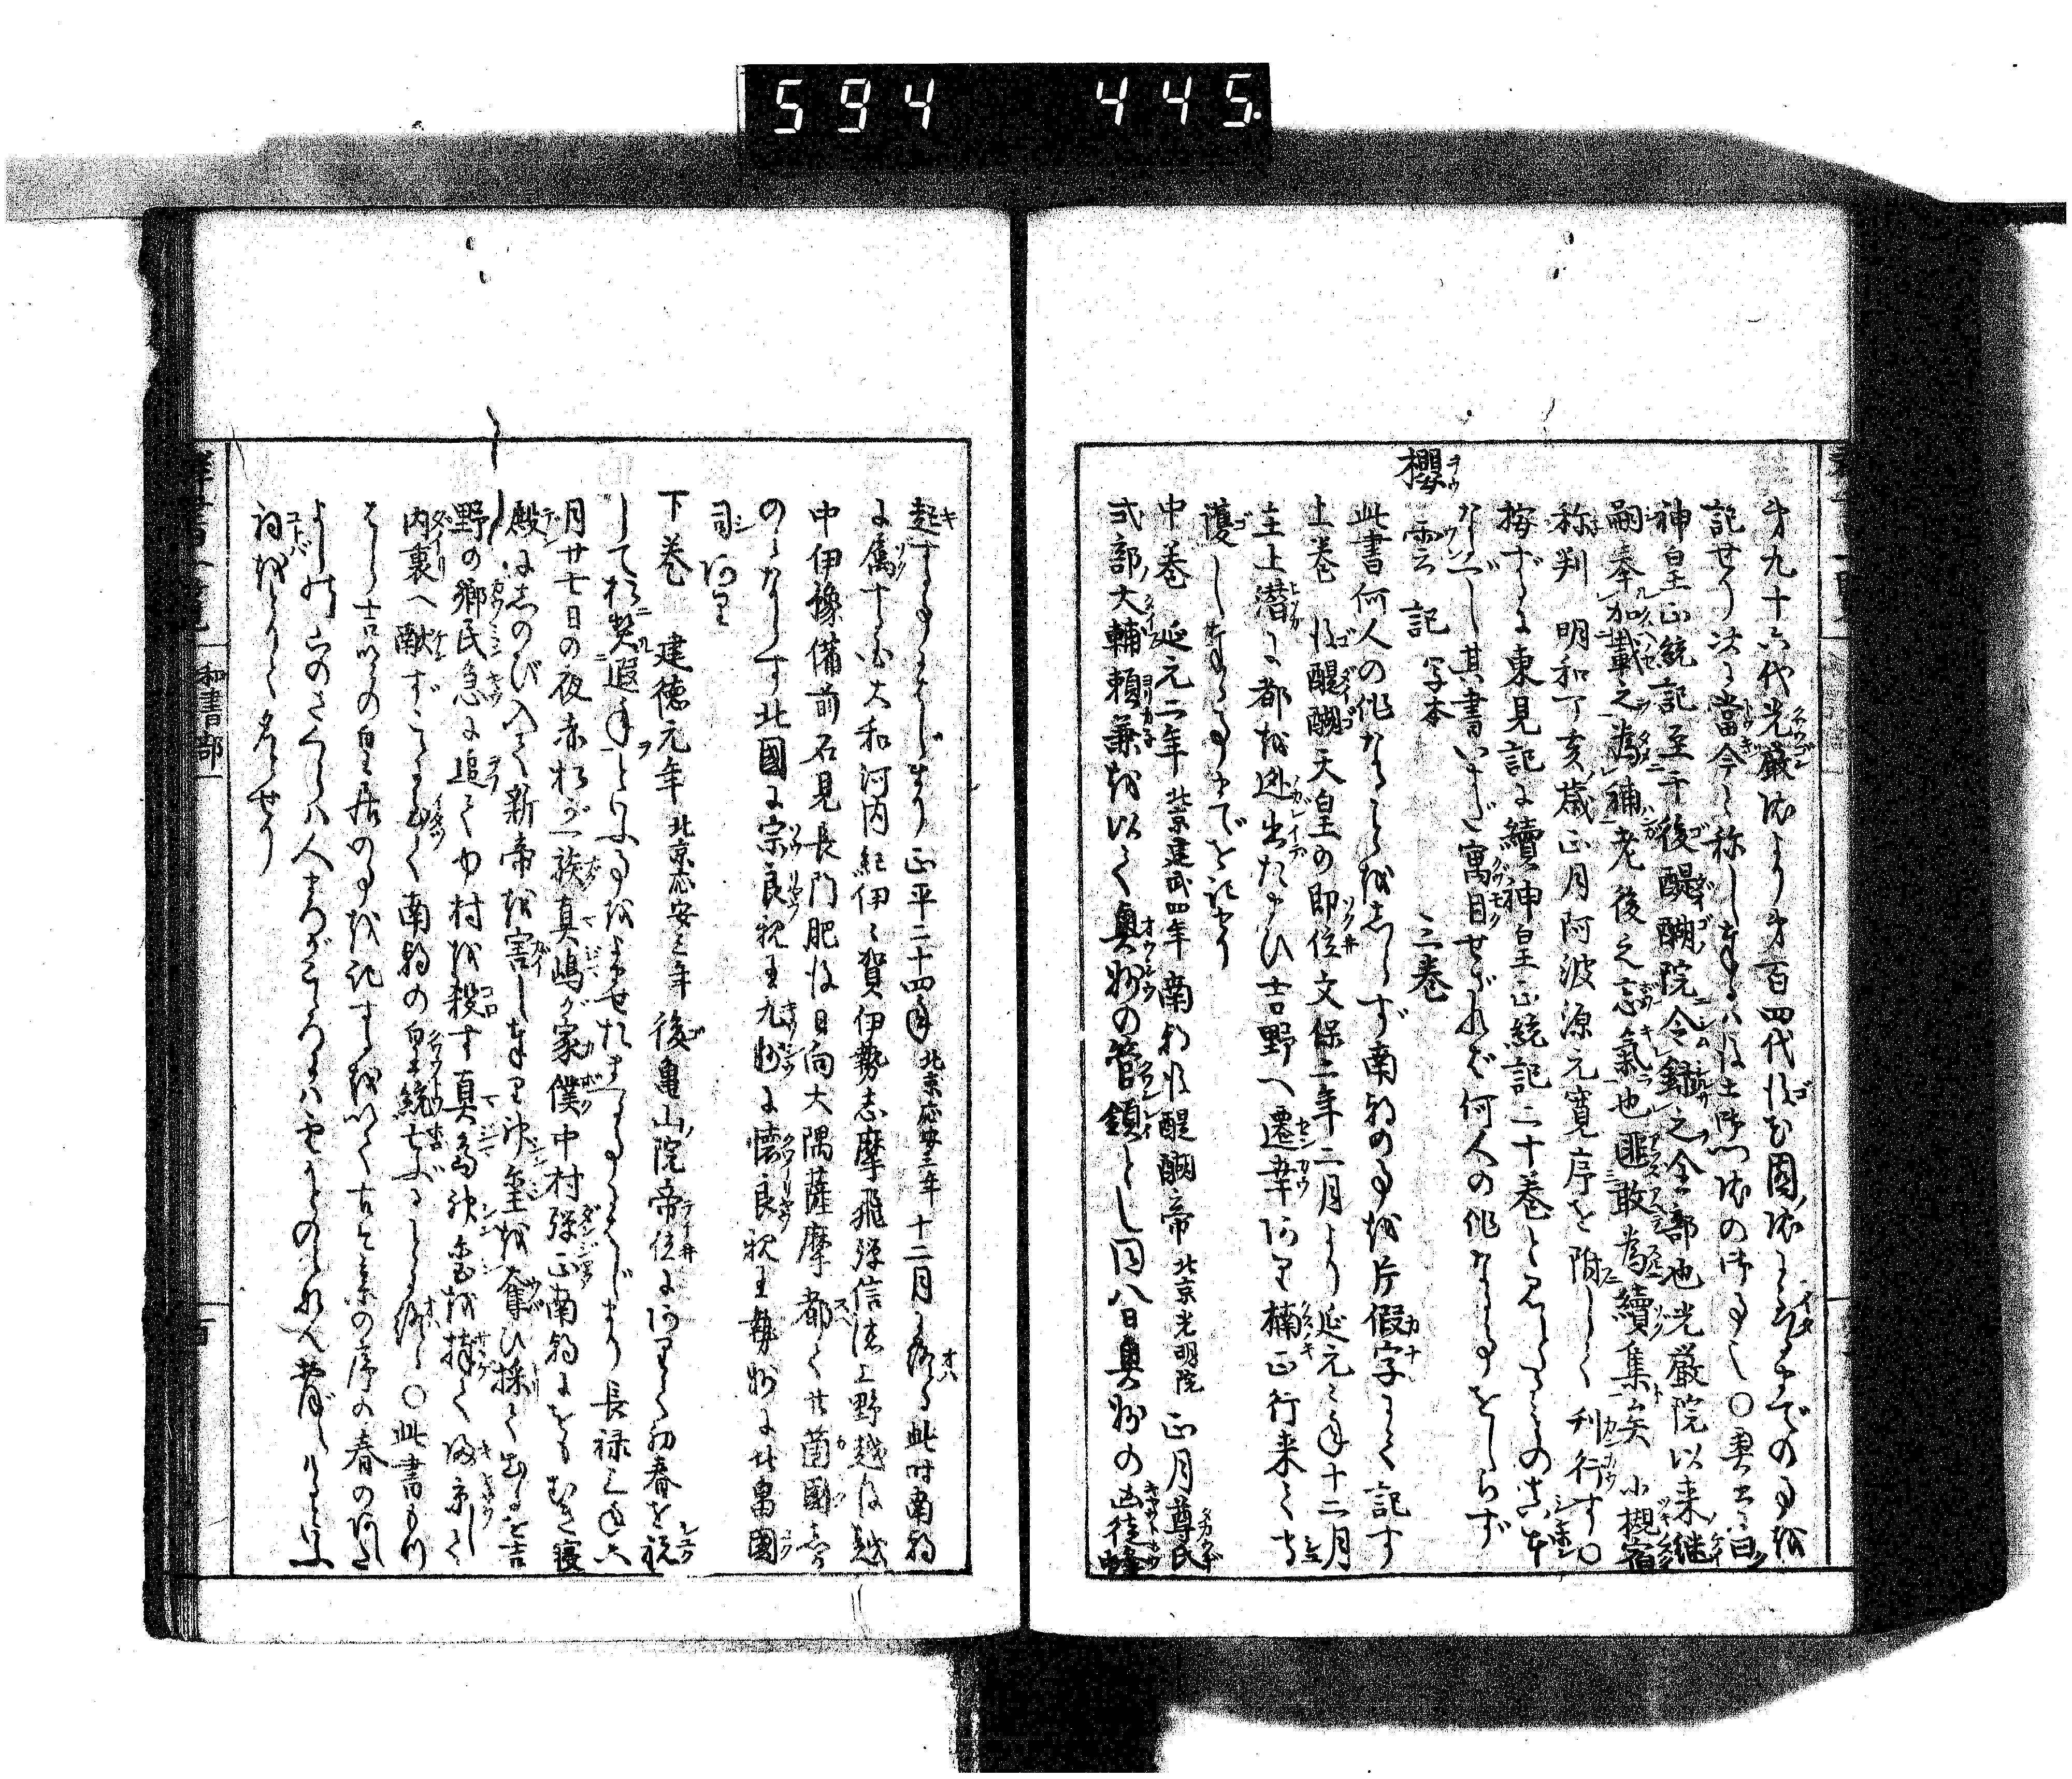 594 445.
才九十六代光厳院より才百四代後花園院にいたるまでの事を
記せり次に當今と称し奉るハ後土御門院の御事也○奥書ニ曰
神皇正統記至于後醍醐院令録之全部也光厳院以来継
嗣奉加載之為補老後之忘氣也匪敢為續集矣 小槻宿
称判 明和丁亥歳正月阿波源元寛序を附して刊行す○
按ずるに東見記に續神皇正統記二十巻と見
なるべし其書いまだ寓目せざれば何人の作なる事をしらず
櫻雲記 写本 三巻
此書何人の作なることをしらず南朝の事を片假字にて記す
上巻 後醍醐天皇の即位文保二年二月より延元々年十二月
主上潜に都を逃出たまひ吉野へ遷幸あり楠正行来て守
護し奉る事までを記せり
中巻 延元二年北京建武四年南朝後醍醐帝北京光明院正月尊氏
式部大輔頼兼を以て奥州の管領とし同八日奥州の凶徒蜂
起する事にはじまり正平二十四年北京応安三年十二月に終る此時南朝
に属する分大和河内紀伊伊賀伊勢志摩飛弾信濃上野越後越
中伊豫備前石見長門肥後日向大隅薩摩都て廿箇國
のミなりす北國に宗良親王九州に懐良親王勢州に北畠國
司あり
下巻 建徳元年北京応安三年後亀山院帝位にありて初春を祝
して松契遐年といふ事をよませたまへるにはじまり長禄元年六
月廿七日の夜赤松が一族真嶋が家僕中村弾正南朝にをもむき寝
殿にしのび入て新帝を害し奉り神璽を奪ひ採て出るを吉
野の郷民急に追て中村を殺す真島神璽を捧て帰京して
内裏へ献ずこゝにおいて南朝の皇統亡ぶることに終る ○此書
はら吉野の皇居の事を記するを以て古今集の序の春の朝
よし野の山のさくらハ人まろがこゝろにハ雲かとのミなん覚えけるといふ
詞をとりて名とせり
和書部